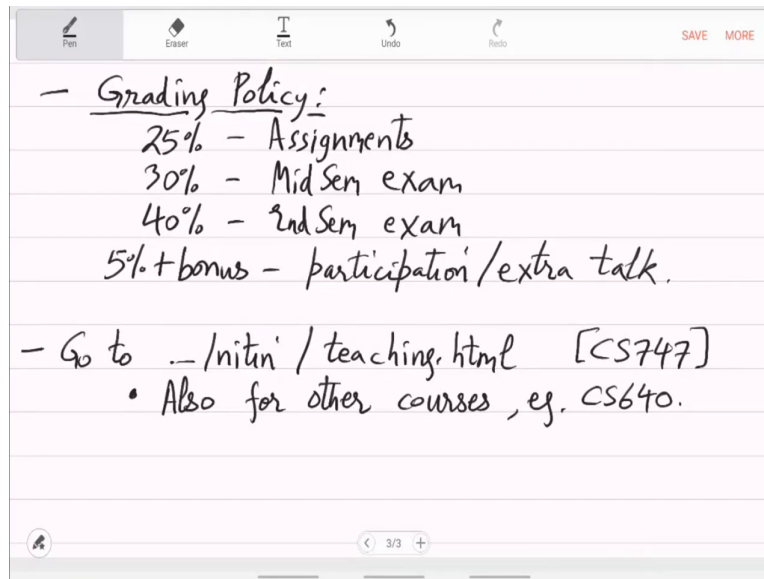 Pen Eraser Text Undo Redo SAVE MORE
- Grading Policy:
25% - Assignments
30% - MidSem exam
40% - EndSem exam
5% + bonus - participation/extra talk.
- Go to ../nitin/teaching.html [CS747]
• Also for other courses, eg. CS640.
3/3